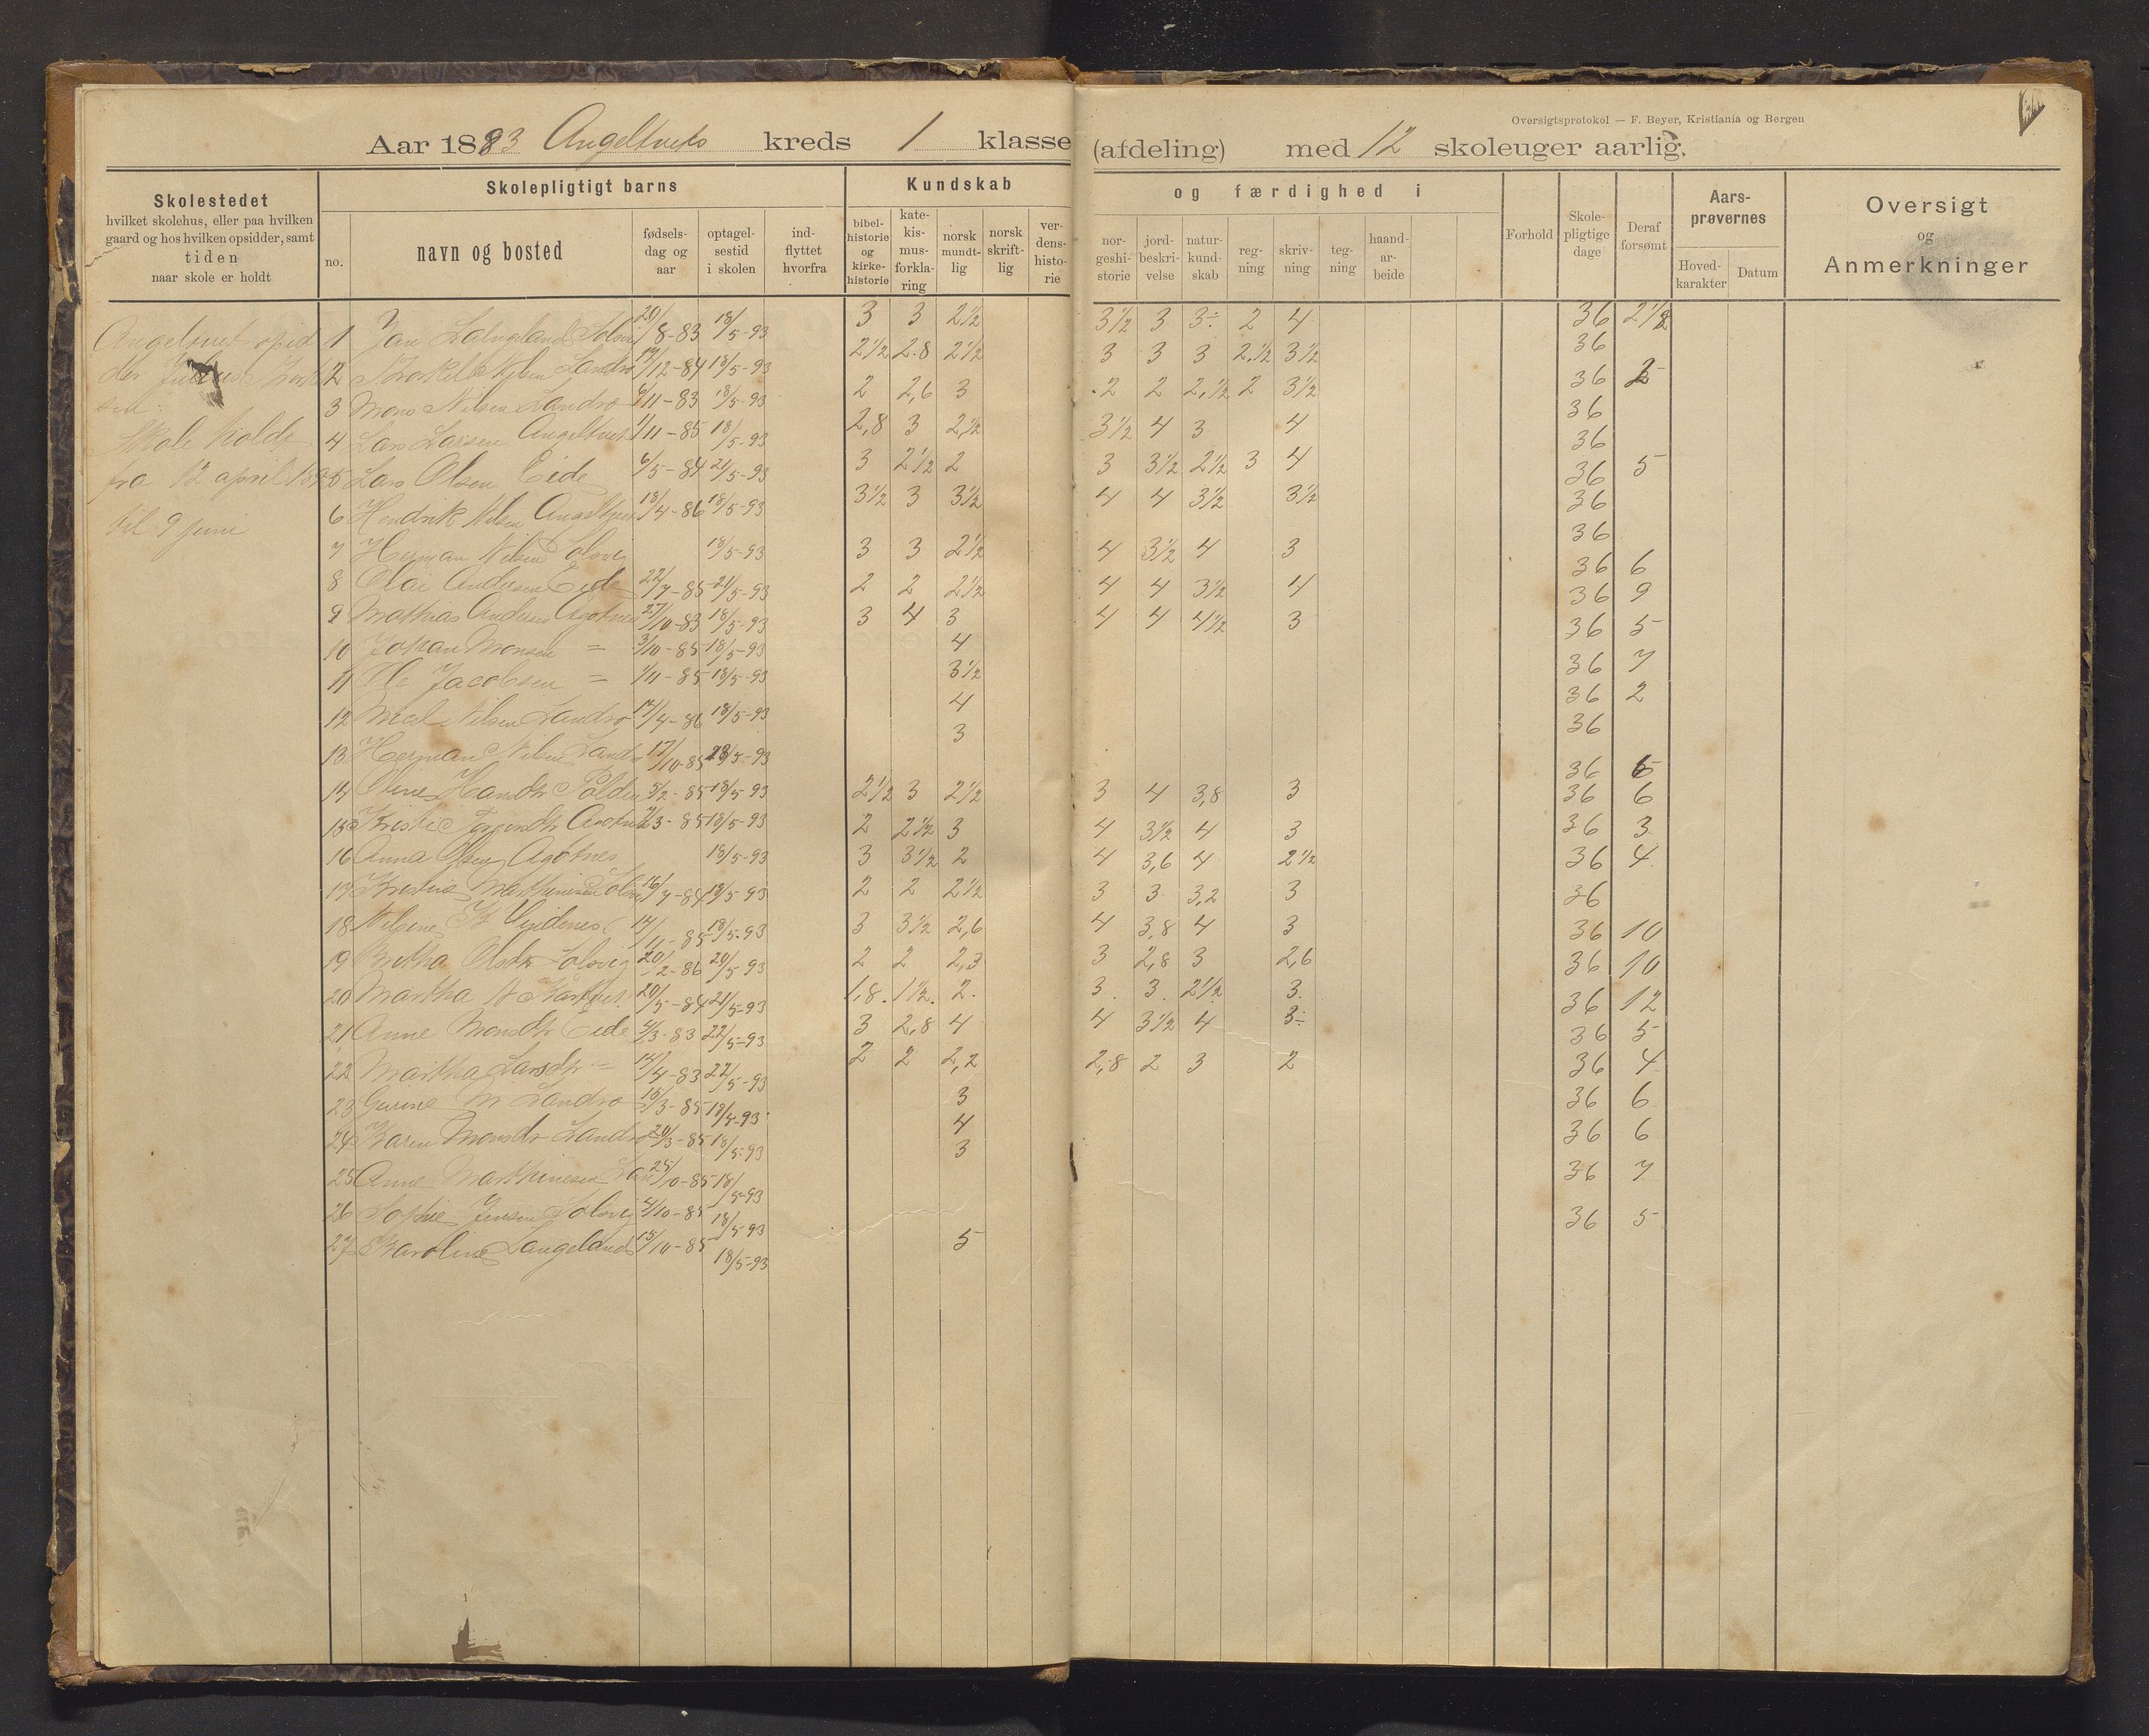 Oversigtsprotokol — F. Beyer, Kristiania og Bergen
Aar 1893 Angeltvets kreds 1 klasse (afdeling) med 12 skoleuger aarlig.
Skolestedet
hvilket skolehus, eller paa hvilken
gaard og hos hvilken opsidder, samt
tiden
naar skole er holdt
Skolepligtigt barns
no.
navn og bosted
fødsels-
dag og
aar
optagel-
sestid
i skolen
ind-
flyttet
hvorfra
Kundskab
bibel-
historie
og
kirke-
historie
kate-
kis-
mus-
forkla-
ring
norsk
mundt-
lig
norsk
skrift-
lig
ver-
dens-
histo-
rie
og færdighed i
nor-
geshi-
storie
jord-
beskri-
velse
natur-
kund-
skab
reg-
ning
skriv-
ning
teg-
ning
haand-
ar-
beide
Forhold
Skole-
pligtige
dage
Deraf
forsømt
Aars-
prøvernes
Hoved-
karakter
Datum
Oversigt
og
Anmerkninger
Angeltvet opsid
der
Skole holdt
fra 12 april
til 9 juni
1 Jan Solsvig 20/8-83 18/5-93 3 3 2½ 3½ 3 3÷ 2 4 36
2 Torkel Landro 12-84 18/5-93 2½ 2.8 2½ 3 3 3 2.½ 3½ 36
3 Mons Nilsen Landro 6/11-83 18/5-93 2 2,6 3 2 2 2,½ 2 3½ 36
4 Lars Larsen Angeltvet 1/11-85 18/5-93 2,8 3 2½ 3½ 4 3 4 36
5 Lars Olsen Eide 6/5-84 21/5-93 3 2½ 2 3 3½ 2½ 3 4 36
6 Hendrik Nilsen Angeltvet 18/4-86 18/5-93 3½ 3 3½ 4 4 3½ 3½ 36 5
7 Herman Nilsen Solsvig 18/5-93 3 3 2½ 4 3½ 4 3 36
8 Olai Andersen Eide 22/7-85 21/5-93 2 2 2½ 4 4 3½ 4 36
9 Mathias Andersen Agotnes 27/10-83 18/5-93 3 4 3 4 4 4½ 3 36 6
10 Johan Monsen = 3/10-85 18/5-93 4 36 9
11 Ole Jacobsen = 1/11-85 18/5-93 3½ 36 5
12 Nilsen Landro 17/4-86 18/5-93 4 36 7
13 Herman Nilsen Landro 17/10-85 18/5-93 3 36 2
36
14 Oline 5/2-85 18/5-93 2½ 3 2½ 3 4 3,8 3 36
15 Kristi Agotnes 3-85 18/5-93 2 2½ 3 4 3½ 4 3 36 6
16 Anna Agotnes 18/5-93 3 3½ 2 4 3,6 4 2½ 36 3
17 Kristine Marthinsen Solsvig 16/7-84 18/5-93 2 2 2½ 3 3 3,2 3 36 4
18 Nilsine Vindenes 14/11-85 18/5-93 3 3½ 2,6 4 3,8 4 3 36
19 Bertha Olsdtr Solsvig 20/2-86 20/5-93 2 2 2,3 3 2,8 3 2,6 36 10
20 Martha 20/5-84 21/5-93 1,8. 1½. 2. 3. 3. 2½ 3. 36 10
21 Anne Monsdtr Eide 3-83 22/5-93 3 2,8 4 4 3½ 4 3÷ 36 12
22 Martha Larsdtr = 14/4-83 22/5-93 2 2 2,2 2,8 2 3 2 36 5
23 Gurine N Landro 3-85 18/5-93 3 36 4
24 Karen Monsdtr Landro 20/3-85 18/5-93 4 36 6
25 Anne Marthinesen 25/10-85 18/5-93 3 36 6
26 Sophie Jensen Solsvig 4/10-85 18/5-93 36 7
27 Karoline Langeland 15/10-85 18/5-93 5 36 5